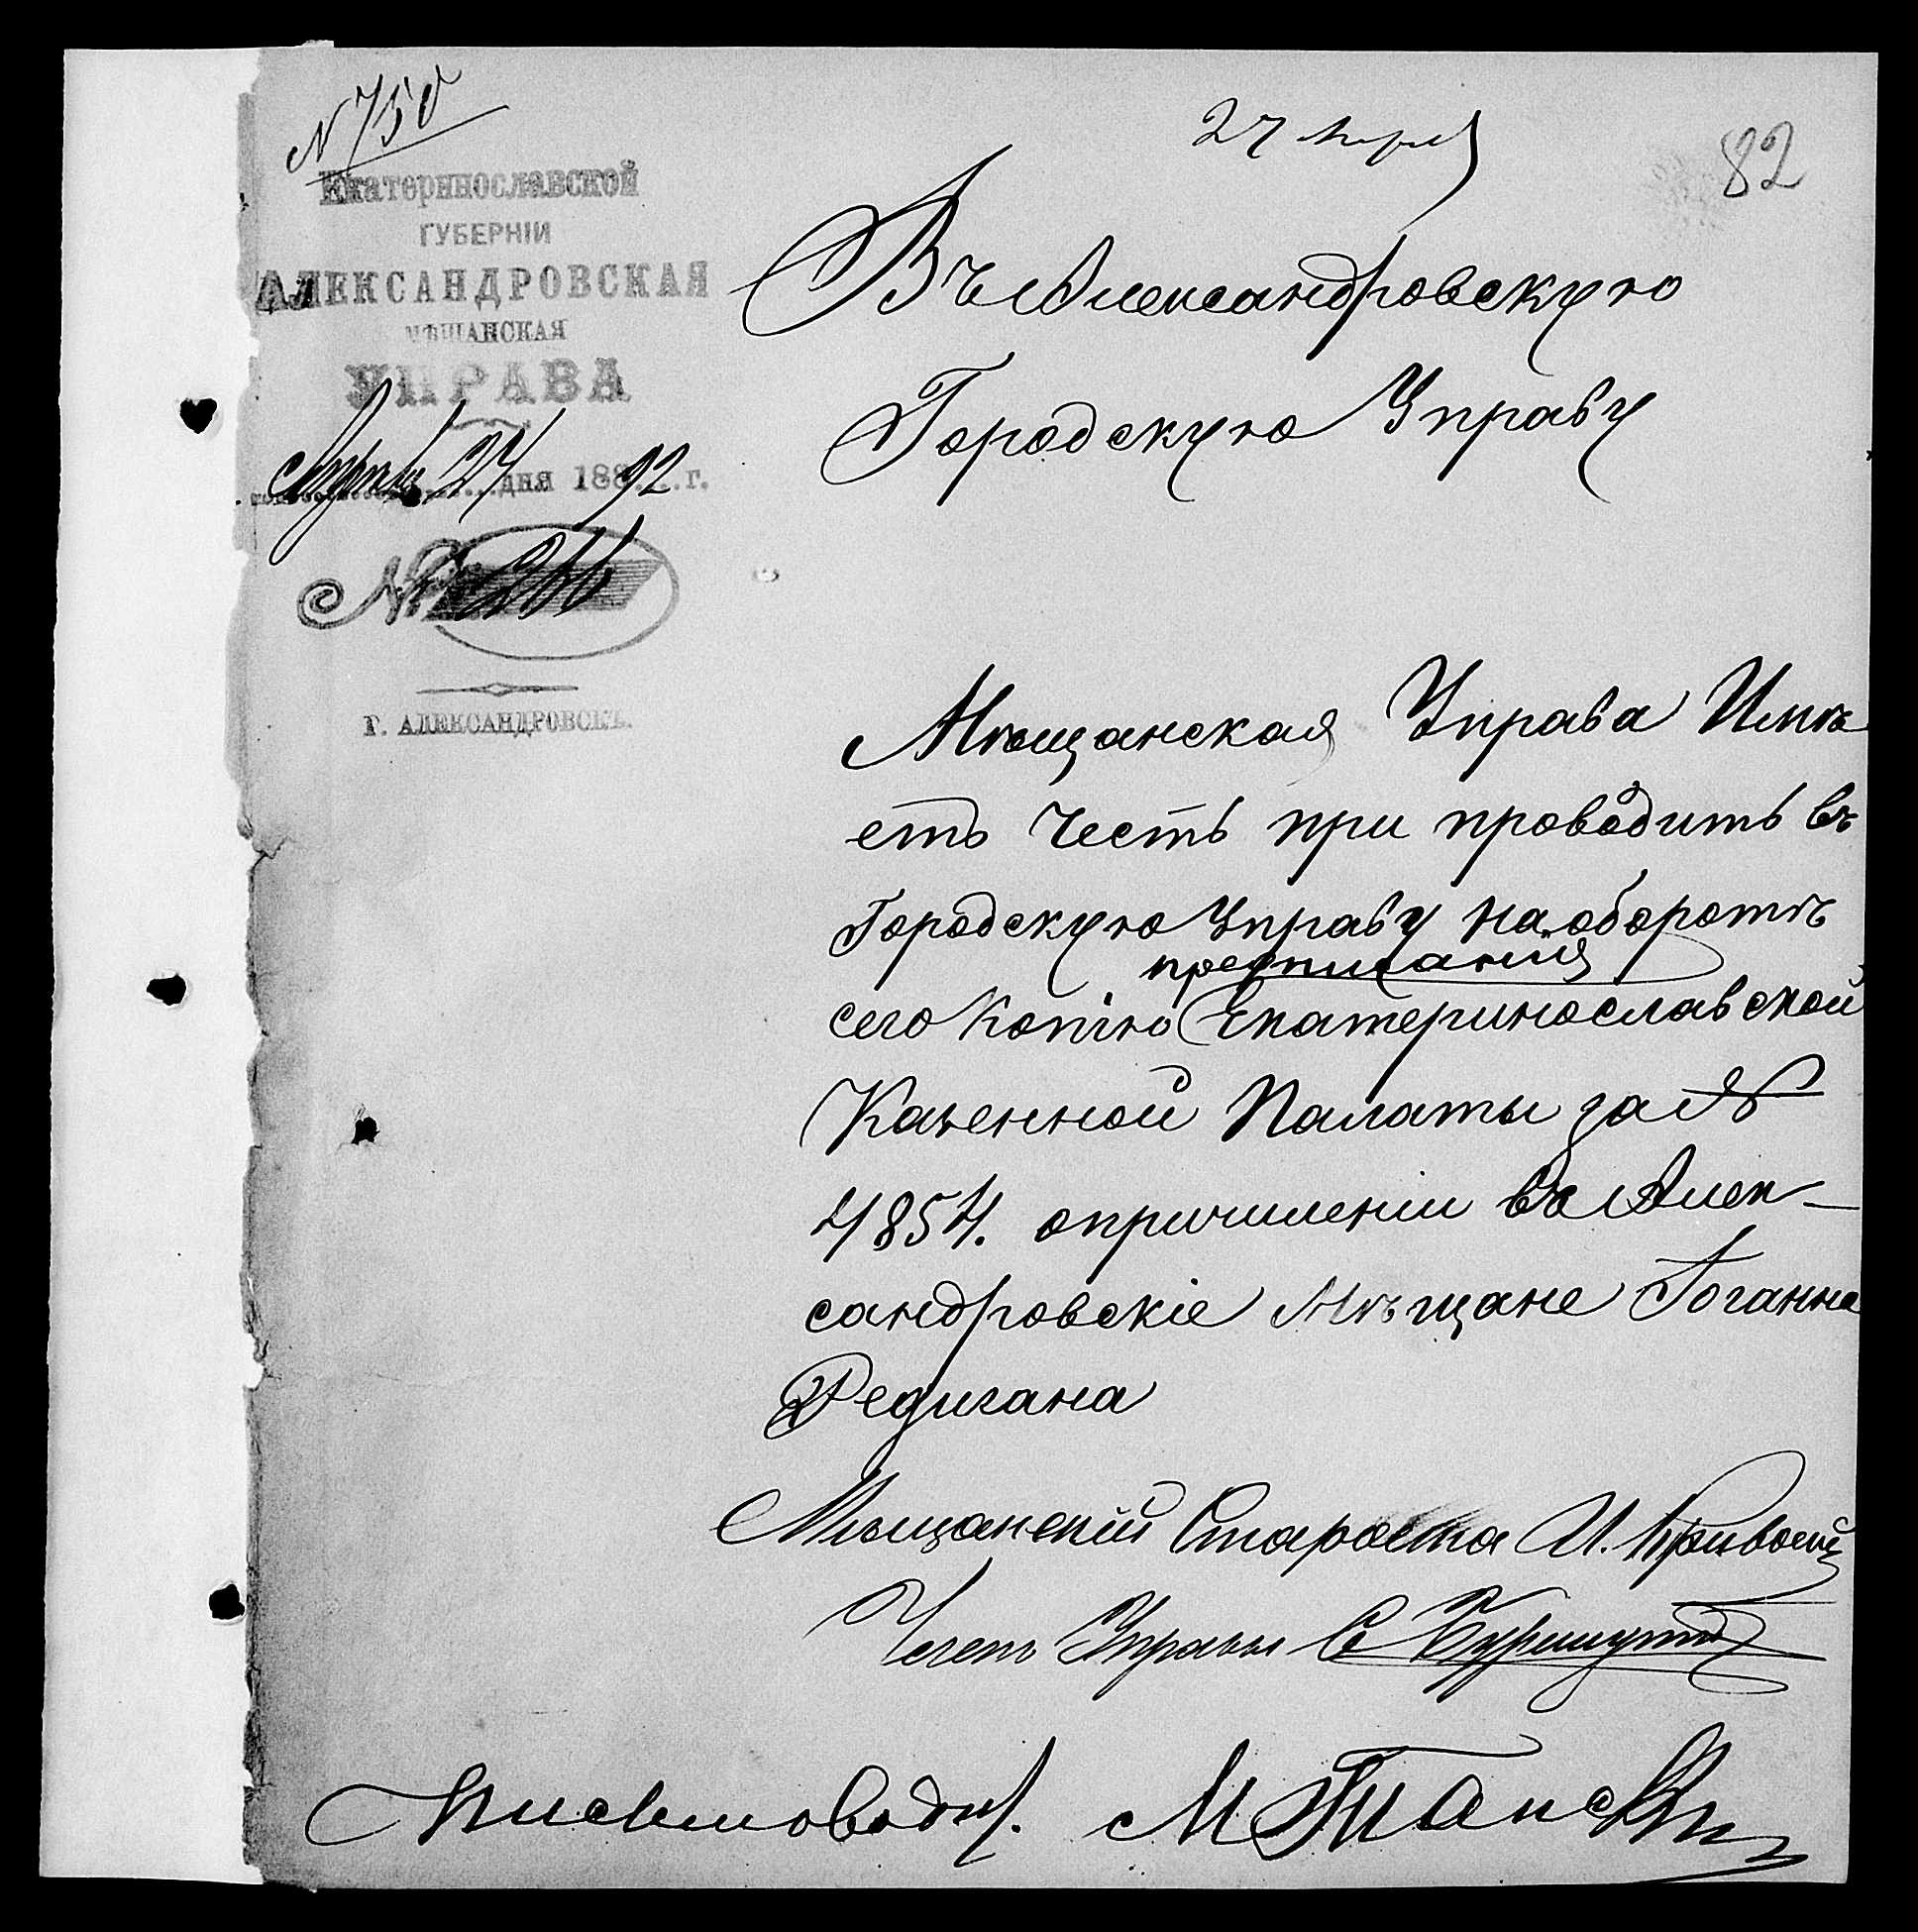 № 750
27 Апрѣля
82
Екатеринославской
ГУБЕРНІИ
АЛЕКСАНДРОВСКАЯ
МѢЩАНСКАЯ
УПРАВА
Апрѣля 27 дня 1892 г.
№ 266
Г. АЛЕКСАНДРОВСКЪ.
Въ Александровскую
Городскую Управу
Мѣщанская Управа Имѣ
етъ честь при проводить въ
Городскую Управу на оборотѣ
предписанія
сего Копію Екатеринославской
Казенной Палаты за №
4854. опричисленіи въ Алек-
сандровскіе Мѣщане Іоганна
Редигана
Мѣщанскій Староста И.
Членъ Управы С
Письмоводит. М